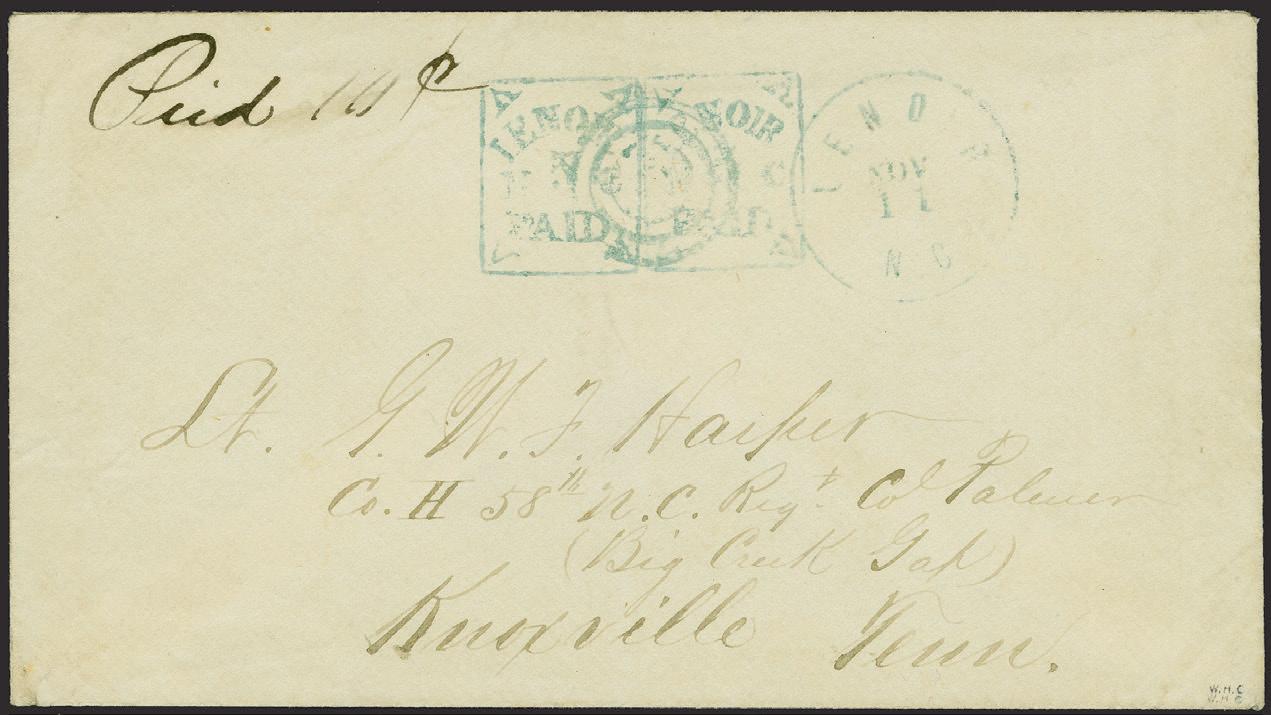 Paid 10¢
LENOIR
N C
PAID
LENOIR
N C
PAID
LENOIR
NOV
11
N C
Lt. G. W. F. Harper
Co. H 58th N.C. Regt. Col Palmer
(Big Creek Gap)
Knoxville Tenn.
W.H.C
W.H.C